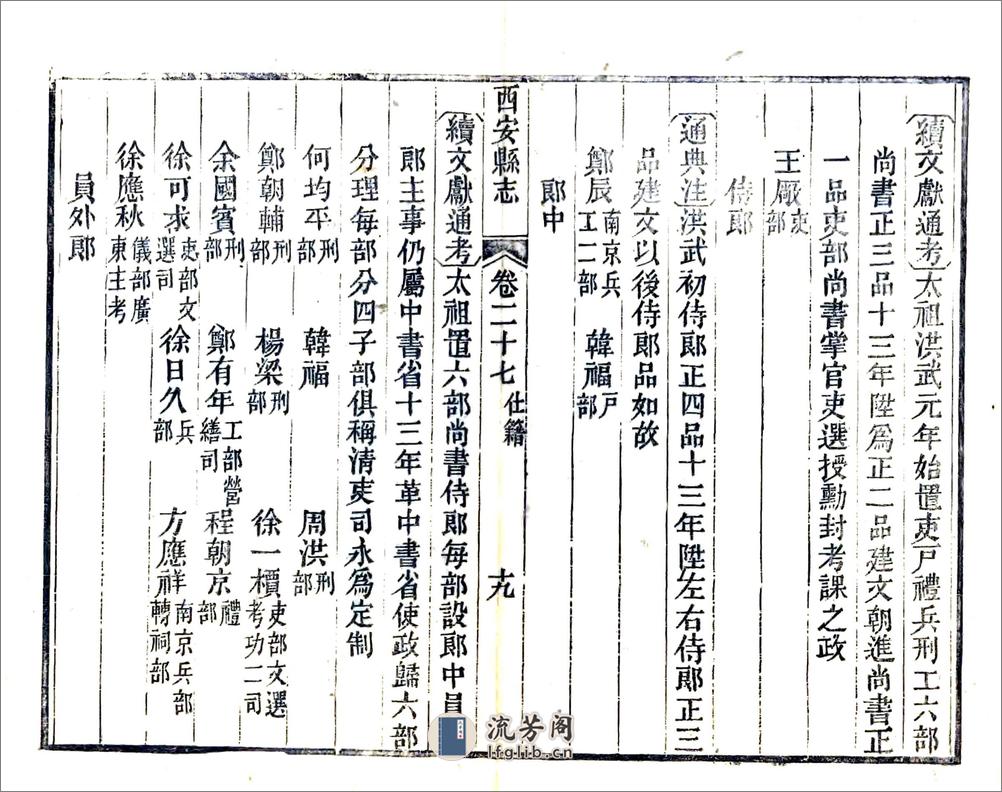 續文獻通考太祖洪武元年始置吏戶禮兵刑工六部
尚書正三品十三年陞爲正二品建文朝進尚書正
一品吏部尚書掌官吏選授勳封考課之政
王厰吏部
侍郎
通典注洪武初侍郎正四品十三年陞左右侍郎正三
品建文以後侍郎品如故
鄭辰南京兵工二部 韓福戸部
郎中
西安縣志 卷二十七 仕籍 十九
續文獻通考太祖置六部尚書侍郎每部設郎中員
郎主事仍屬中書省十三年革中書省使政歸六部
分理每部分四子部俱稱清吏司永爲定制
何均平刑部 韓福 周洪刑部
鄭朝輔刑部 楊梁刑部 徐一檟吏部文選考功二司
余國賓刑部 鄭有年工部營繕司 程朝京禮部
徐可求吏部文選司 徐日久兵部 方應祥南京兵部轉祠部
徐應秋儀部廣東主考
員外郎
流芳阁
lfglib.cn